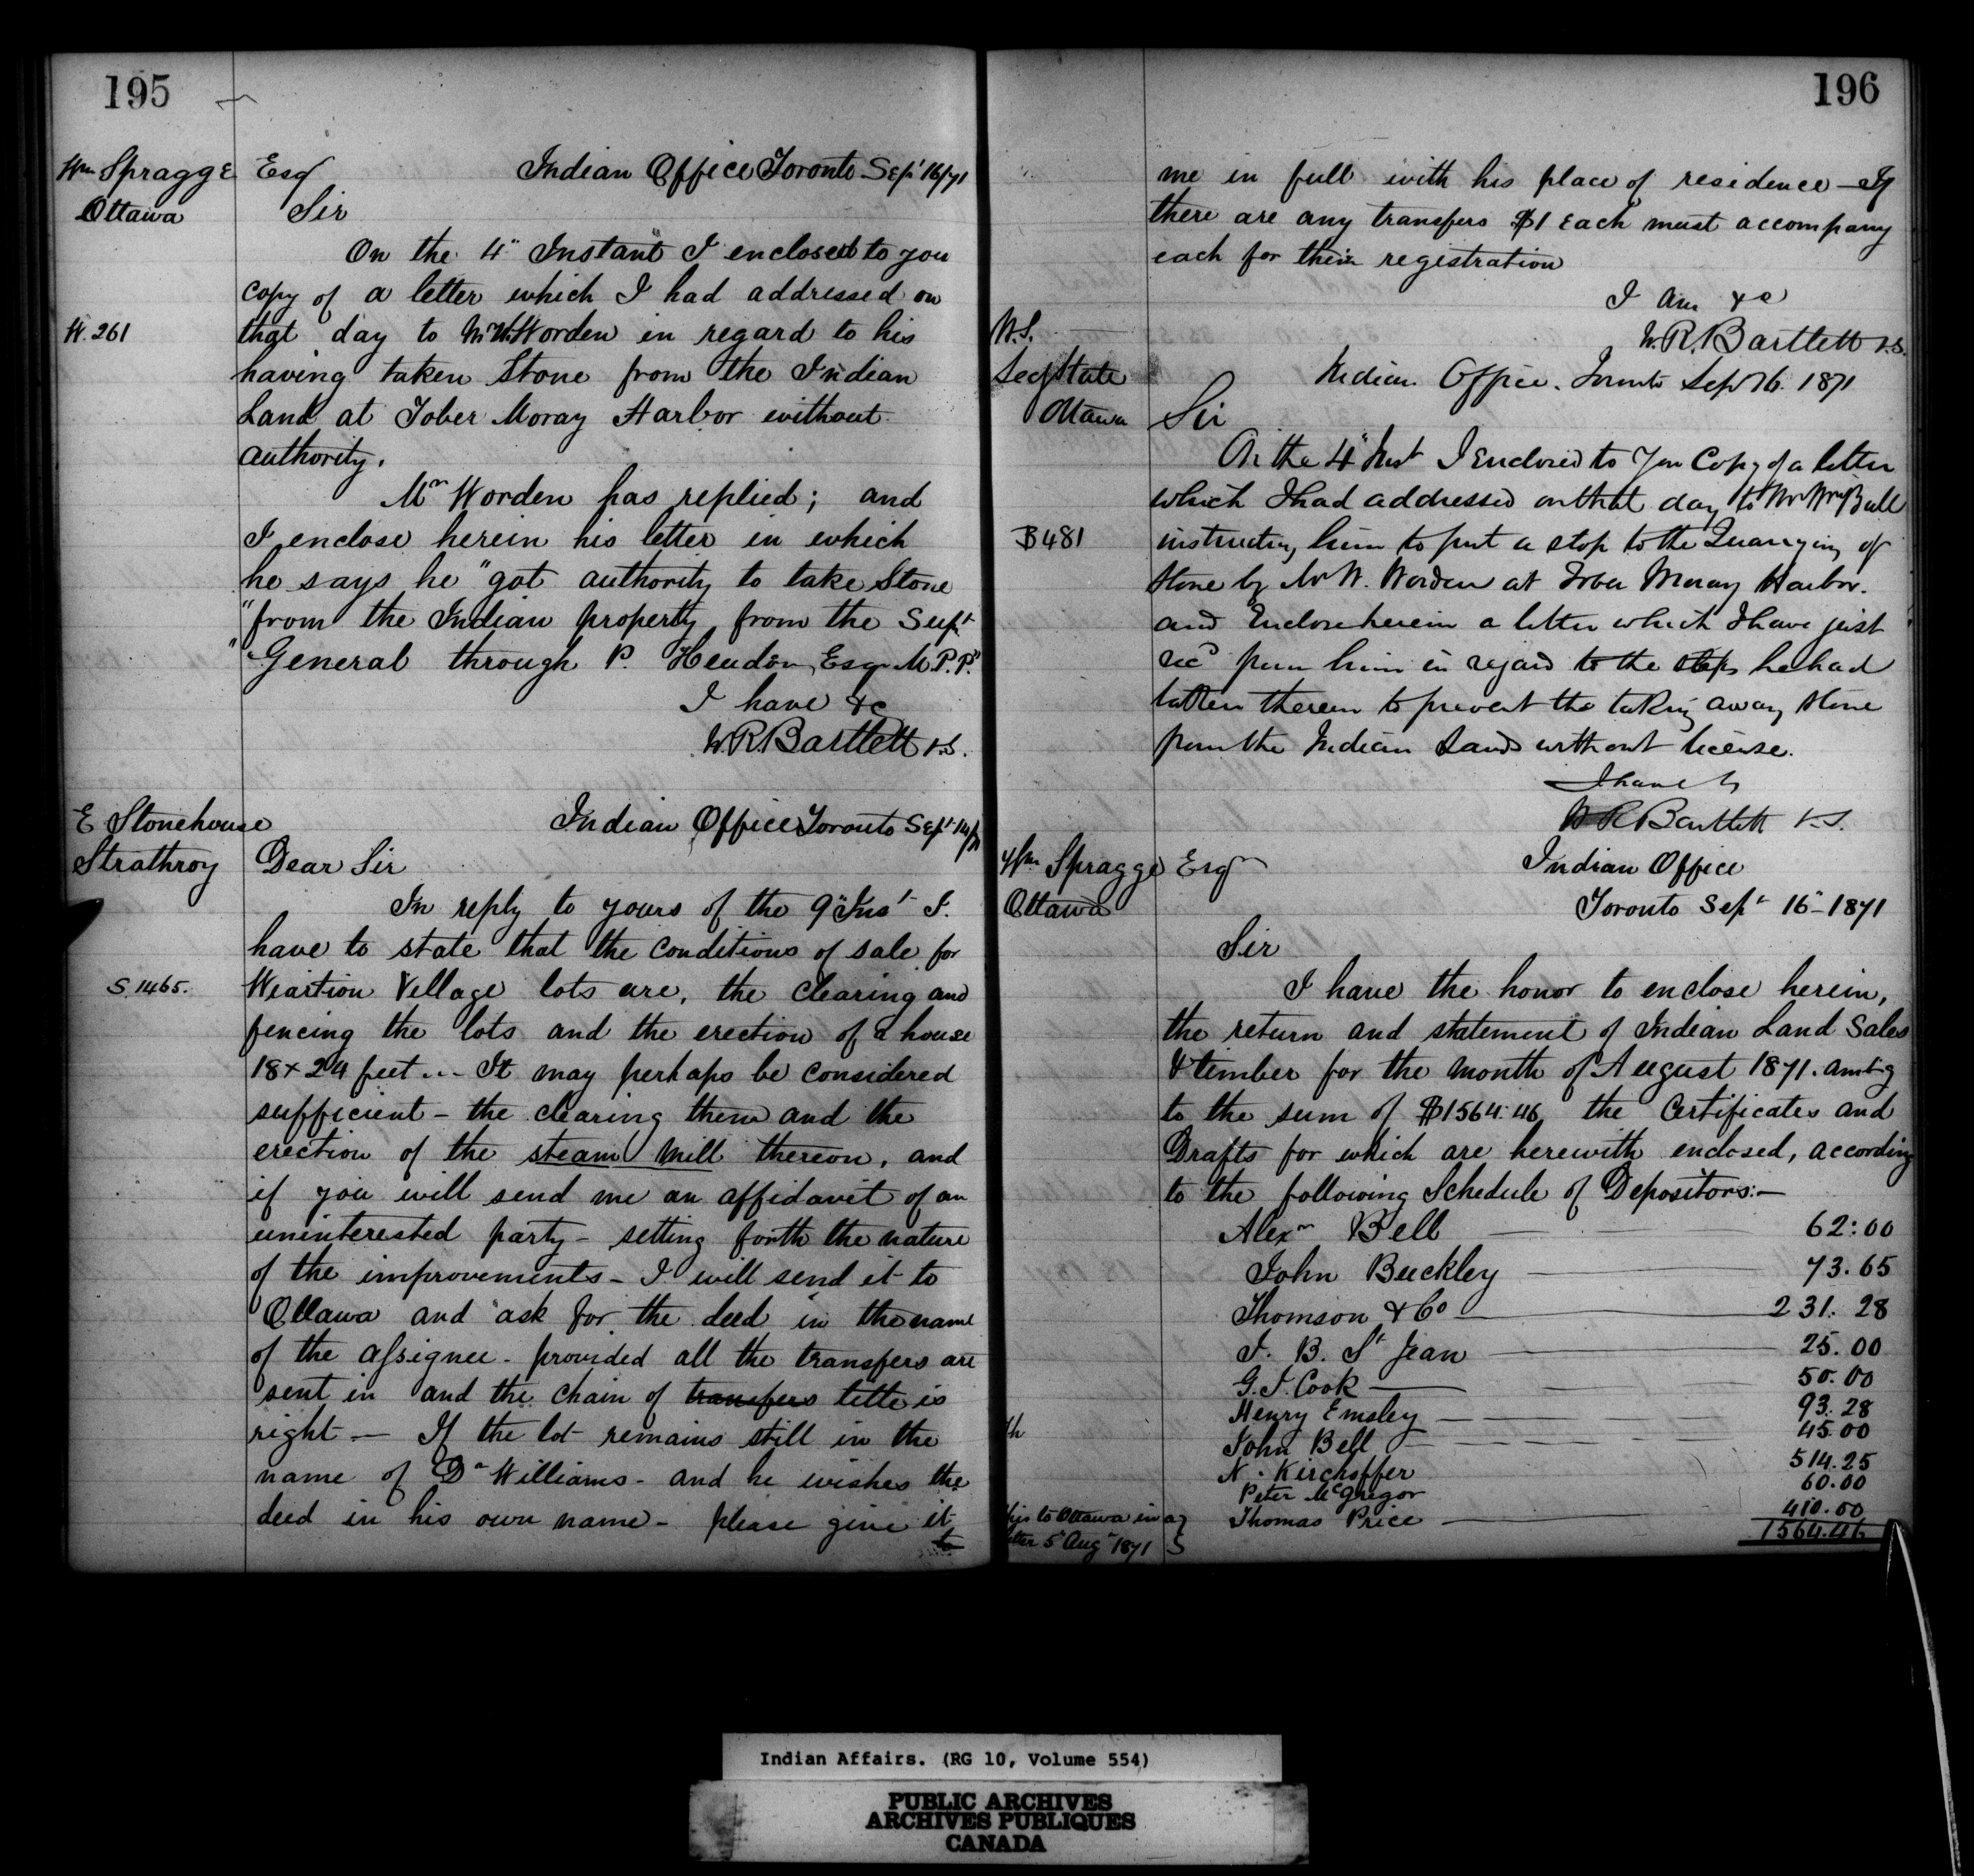 195
Wm Spragge Esqr Indian Office Toronto Sept 16/71
Ottawa Sir
On the 4" Instant I enclosed to you
copy of a letter which I had addressed on
W. 261 that day to Mr W. Worden in regard to his
having taken Stone from the Indian
Land at Tober Moray Harbor without
authority.
Mr Worden has replied; and
I enclose herein his letter in which
he says he "got authority to take Stone
"from the Indian property from the Supt
"General through P. Hendon, Esqr M.P.P."
I have &c
W.R. Bartlett V.S.
E Stonehouse Indian Office Toronto Sept 14/71
Strathroy Dear Sir
In reply to yours of the 9" Inst I
have to state that the conditions of sale for
S. 1465. Wiartion Village lots are, the clearing and
fencing the lots and the erection of a house
18 x 24 feet... It may perhaps be considered
sufficient - the clearing them and the
erection of the steam Mill thereon, and
if you will send me an affidavit of an
uninterested party - setting forth the nature
of the improvements - I will send it to
Ottawa and ask for the deed in the name
of the assignee - provided all the transfers are
sent in and the chain of transfers title is
right — If the lot remains still in the
name of Dr Williams - and he wishes the
deed in his own name - please give it
to
196
me in full with his place of residence - If
there are any transfers $1 each must accompany
each for their registration
I am &c
W.R. Bartlett V.S.
U.S.
Secy State Indian Office. Toronto Sept 16. 1871
Ottawa Sir
On the 4" Inst I Enclosed to you Copy of a letter
which I had addressed on that day to Mr Wm Bull
B 481 instructing him to put a stop to the Quarrying of
stone by Mr W. Worden at Tober Moray Harbor.
and Enclose herein a letter which I have just
recd from him in regard to the steps he had
taken therein to prevent the taking away stone
from the Indian Lands without license.
I have &c
W R Bartlett V.S.
Wm Spragge Esqr Indian Office
Ottawa Toronto Sept 16" 1871
Sir
I have the honor to enclose herein,
the return and statement of Indian Land Sales
& timber for the month of August 1871. amtg
to the sum of $1564.46 the Certificates and
Drafts for which are herewith enclosed, according
to the following Schedule of Depositors:-
Alexr Bell 62:00
John Buckley 73.65
Thomson & Co 231.28
J. B. St Jean 25.00
G. J. Cook 50.00
Henry Emsley 93.28
John Bell 45.00
N. Kirchoffer 514.25
Peter McGregor 60.00
this to Ottawa in a Thomas Price 410.00
letter 5" Aug" 1871 1564.46
Indian Affairs. (RG 10, Volume 554)
PUBLIC ARCHIVES
ARCHIVES PUBLIQUES
CANADA